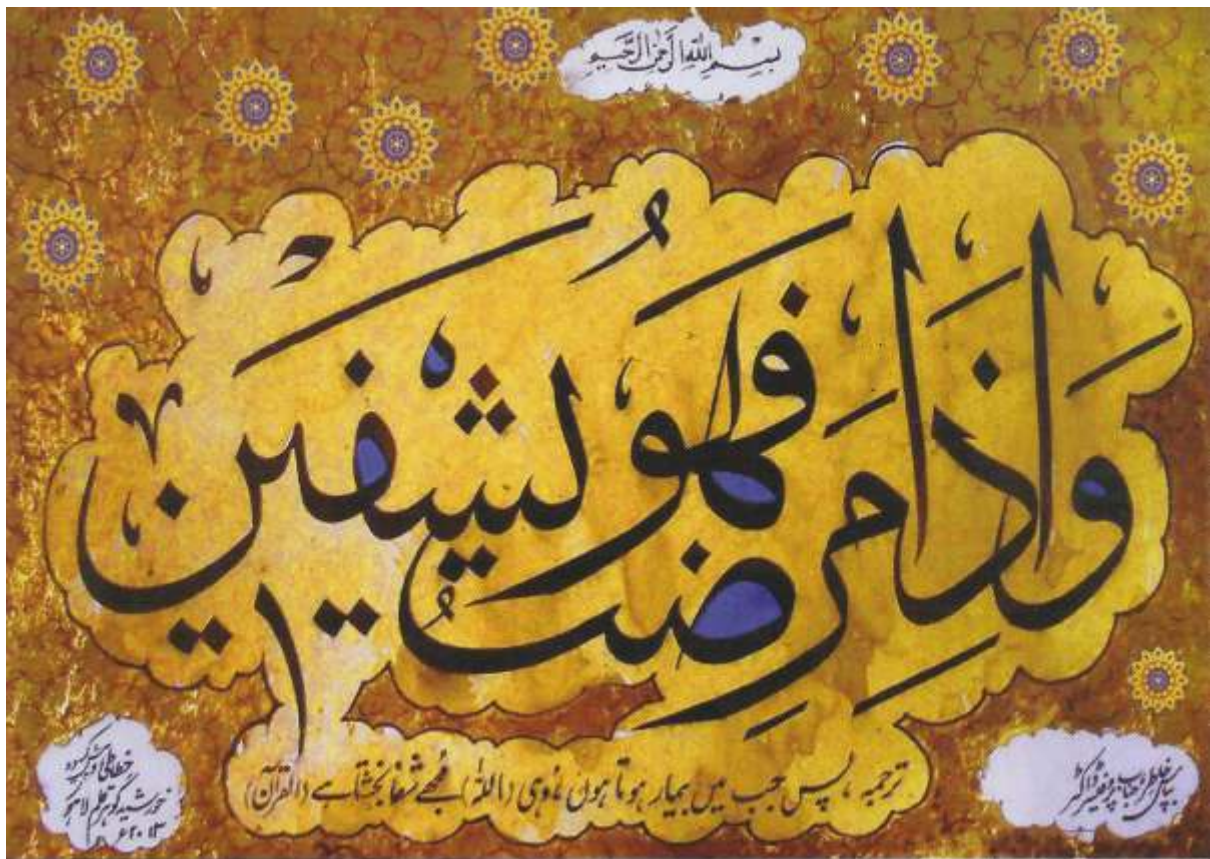 بِسْمِ اللهِ الرَّحْمٰنِ الرَّحِيْمِ
وَاِذَا مَرِضْتُ فَهُوَ يَشْفِيْنِ
ترجمہ، پس جب میں بیمار ہوتا ہوں تو وہی (اللہ) مجھے شفا بخشتا ہے (القرآن)
خاطر جناب پروفیسر ڈاکٹر
خطاطی
خورشید گوہر قلم لاہور
۲۰۱۳ء